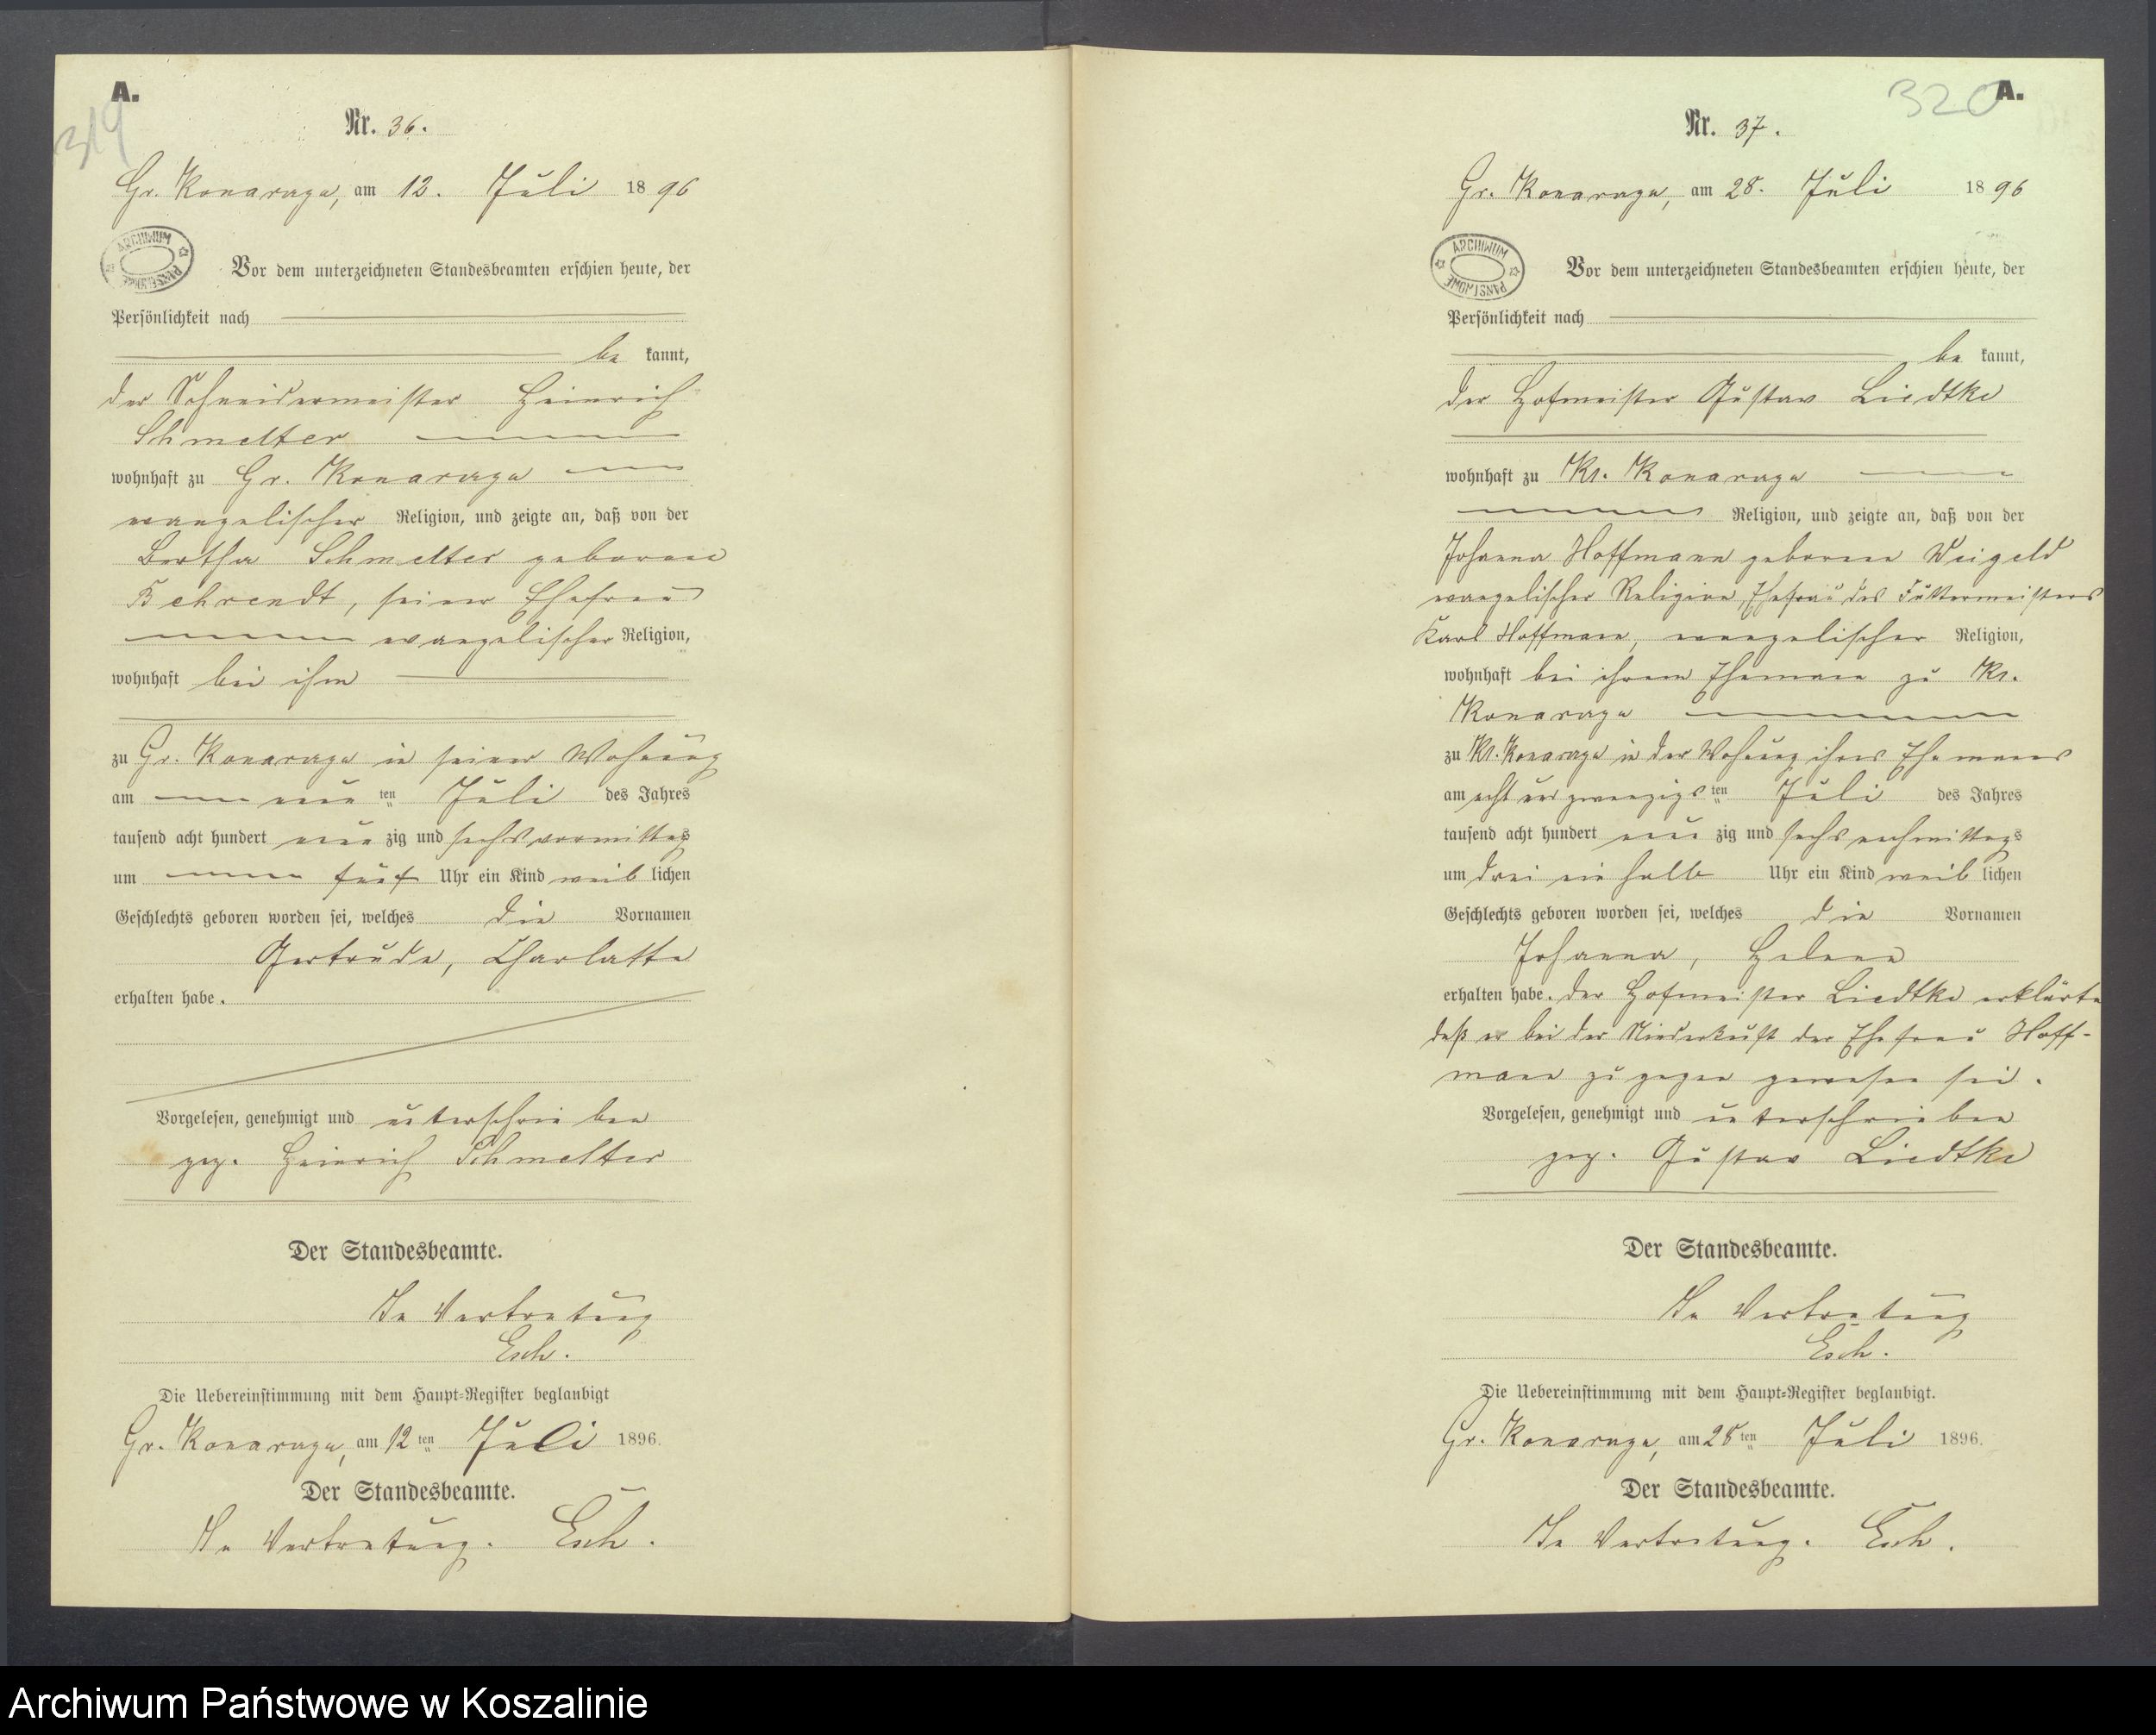 A.
319
Nr. 36.
Gr. Konarzyn, am 12. Juli 1896
ARCHIWUM PAŃSTWOWE
Vor dem unterzeichneten Standesbeamten erschien heute, der
Persönlichkeit nach
be kannt,
der Schneidermeister Heinrich
Schmelter
wohnhaft zu Gr. Konarzyn
evangelischer Religion, und zeigte an, daß von der
Bertha Schmelter geborene
Behrendt, seiner Ehefrau
evangelischer Religion,
wohnhaft bei ihm
zu Gr. Konarzyn in seiner Wohnung
am ten Juli des Jahres
tausend acht hundert neun zig und sechs vormittags
um fünf Uhr ein Kind weib lichen
Geschlechts geboren worden sei, welches die Vornamen
Gertrude, Charlotte
erhalten habe.
Vorgelesen, genehmigt und unterschrieben
gez. Heinrich Schmelter
Der Standesbeamte.
In Vertretung
Esch.
Die Uebereinstimmung mit dem Haupt-Register beglaubigt
Gr. Konarzyn, am 12ten Juli 1896.
Der Standesbeamte.
In Vertretung. Esch.
320
A.
Nr. 37.
Gr. Konarzyn, am 28. Juli 1896
ARCHIWUM PAŃSTWOWE
Vor dem unterzeichneten Standesbeamten erschien heute, der
Persönlichkeit nach
be kannt,
der Hofmeister Gustav Liedtke
wohnhaft zu Kl. Konarzyn
Religion, und zeigte an, daß von der
Johanna Hoffmann geborene Weigeld
evangelischer Religion, Ehefrau des Futtermeisters
Karl Hoffmann, evangelischer Religion,
wohnhaft bei ihrem Ehemann zu Kl.
Konarzyn
zu Kl. Konarzyn in der Wohnung ihres Ehemanns
am acht und zwanzigsten Juli des Jahres
tausend acht hundert neun zig und sechs nachmittags
um drei ein halb Uhr ein Kind weib lichen
Geschlechts geboren worden sei, welches die Vornamen
Johanna, Helene
erhalten habe. Der Hofmeister Liedtke erklärte
daß er bei der Niederkunft der Ehefrau Hoff-
mann zugegen gewesen sei.
Vorgelesen, genehmigt und unterschrieben
gez. Gustav Liedtke
Der Standesbeamte.
In Vertretung
Esch.
Die Uebereinstimmung mit dem Haupt-Register beglaubigt.
Gr. Konarzyn, am 28ten Juli 1896.
Der Standesbeamte.
In Vertretung. Esch.
Archiwum Państwowe w Koszalinie